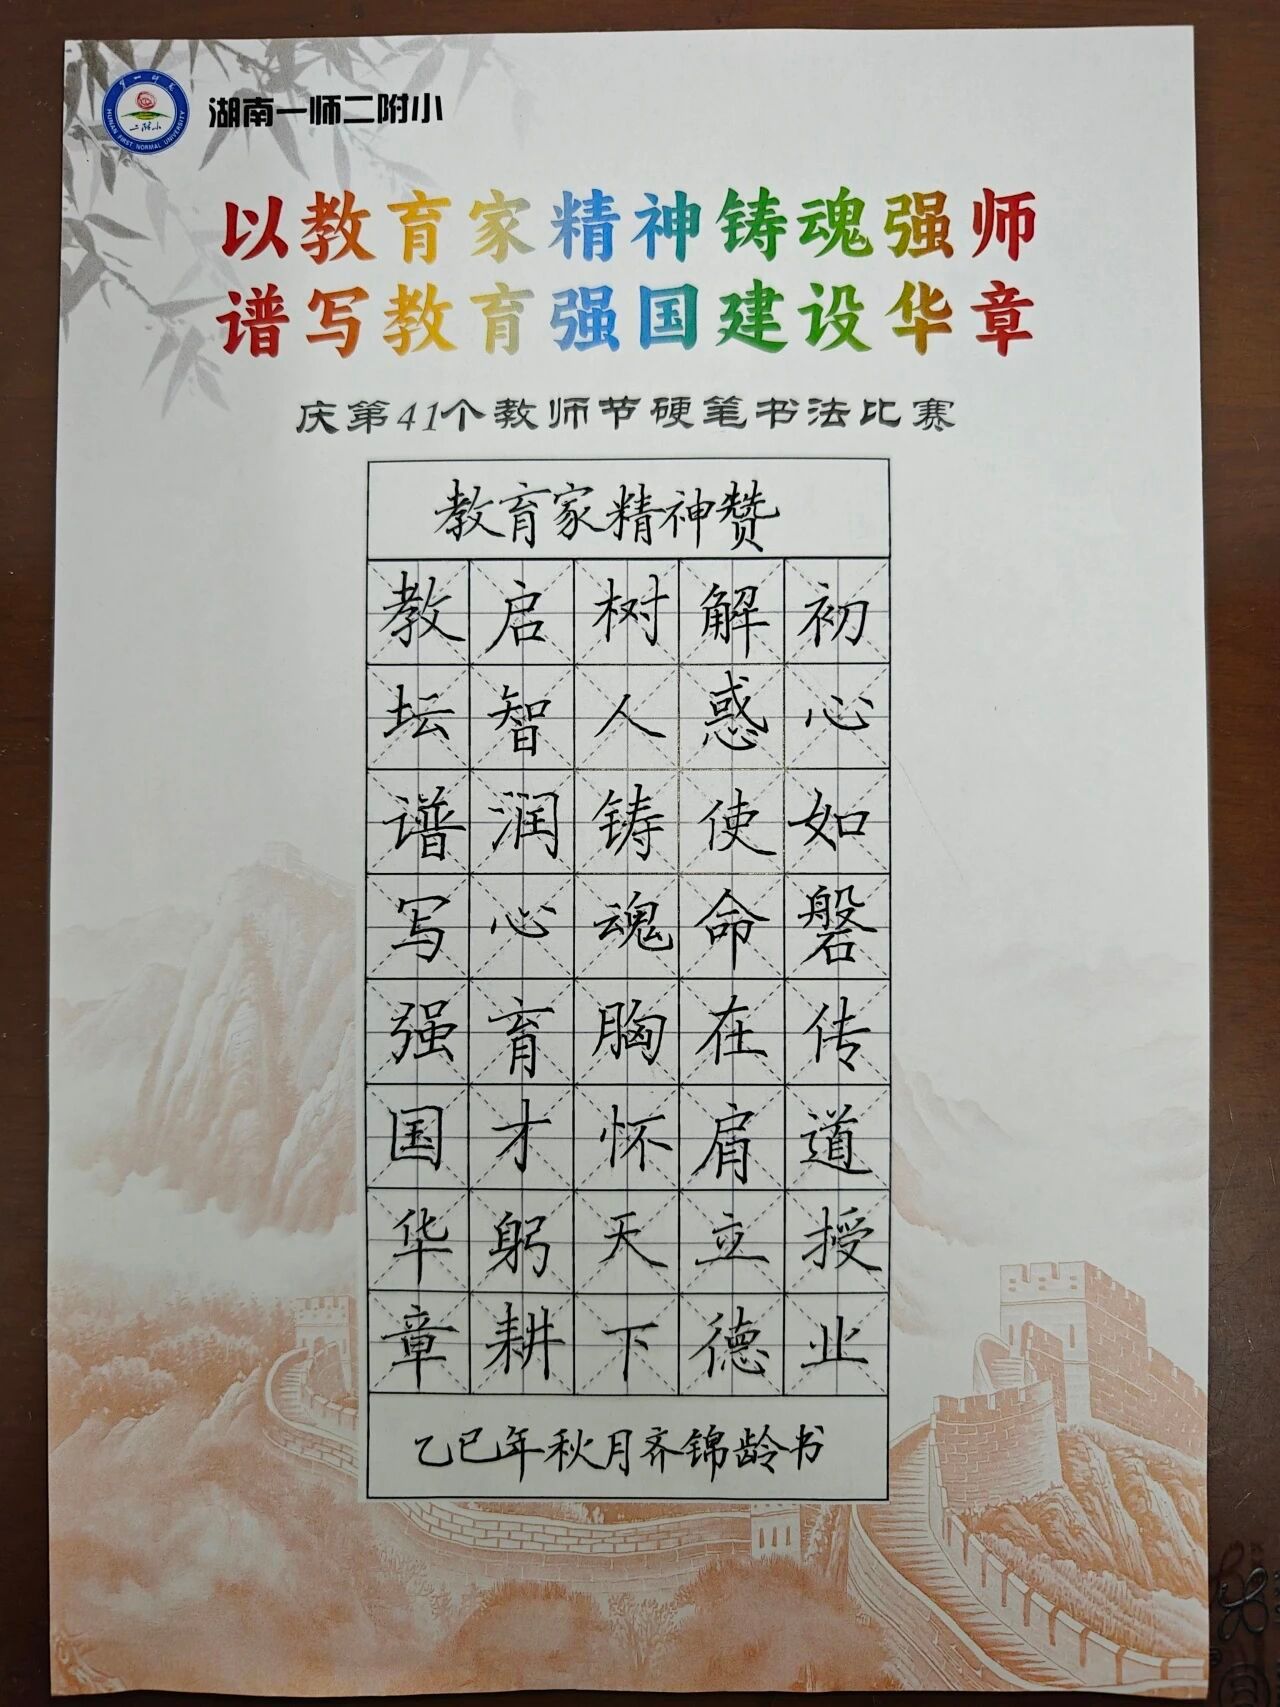 HUNAN FIRST NORMAL UNIVERSITY
二附小
湖南一师二附小
以教育家精神铸魂强师
谱写教育强国建设华章
庆第41个教师节硬笔书法比赛
教育家精神赞
初心如磐传道授业
解惑使命在肩立德
树人铸魂胸怀天下
启智润心育才躬耕
教坛谱写强国华章
乙巳年秋月齐锦龄书